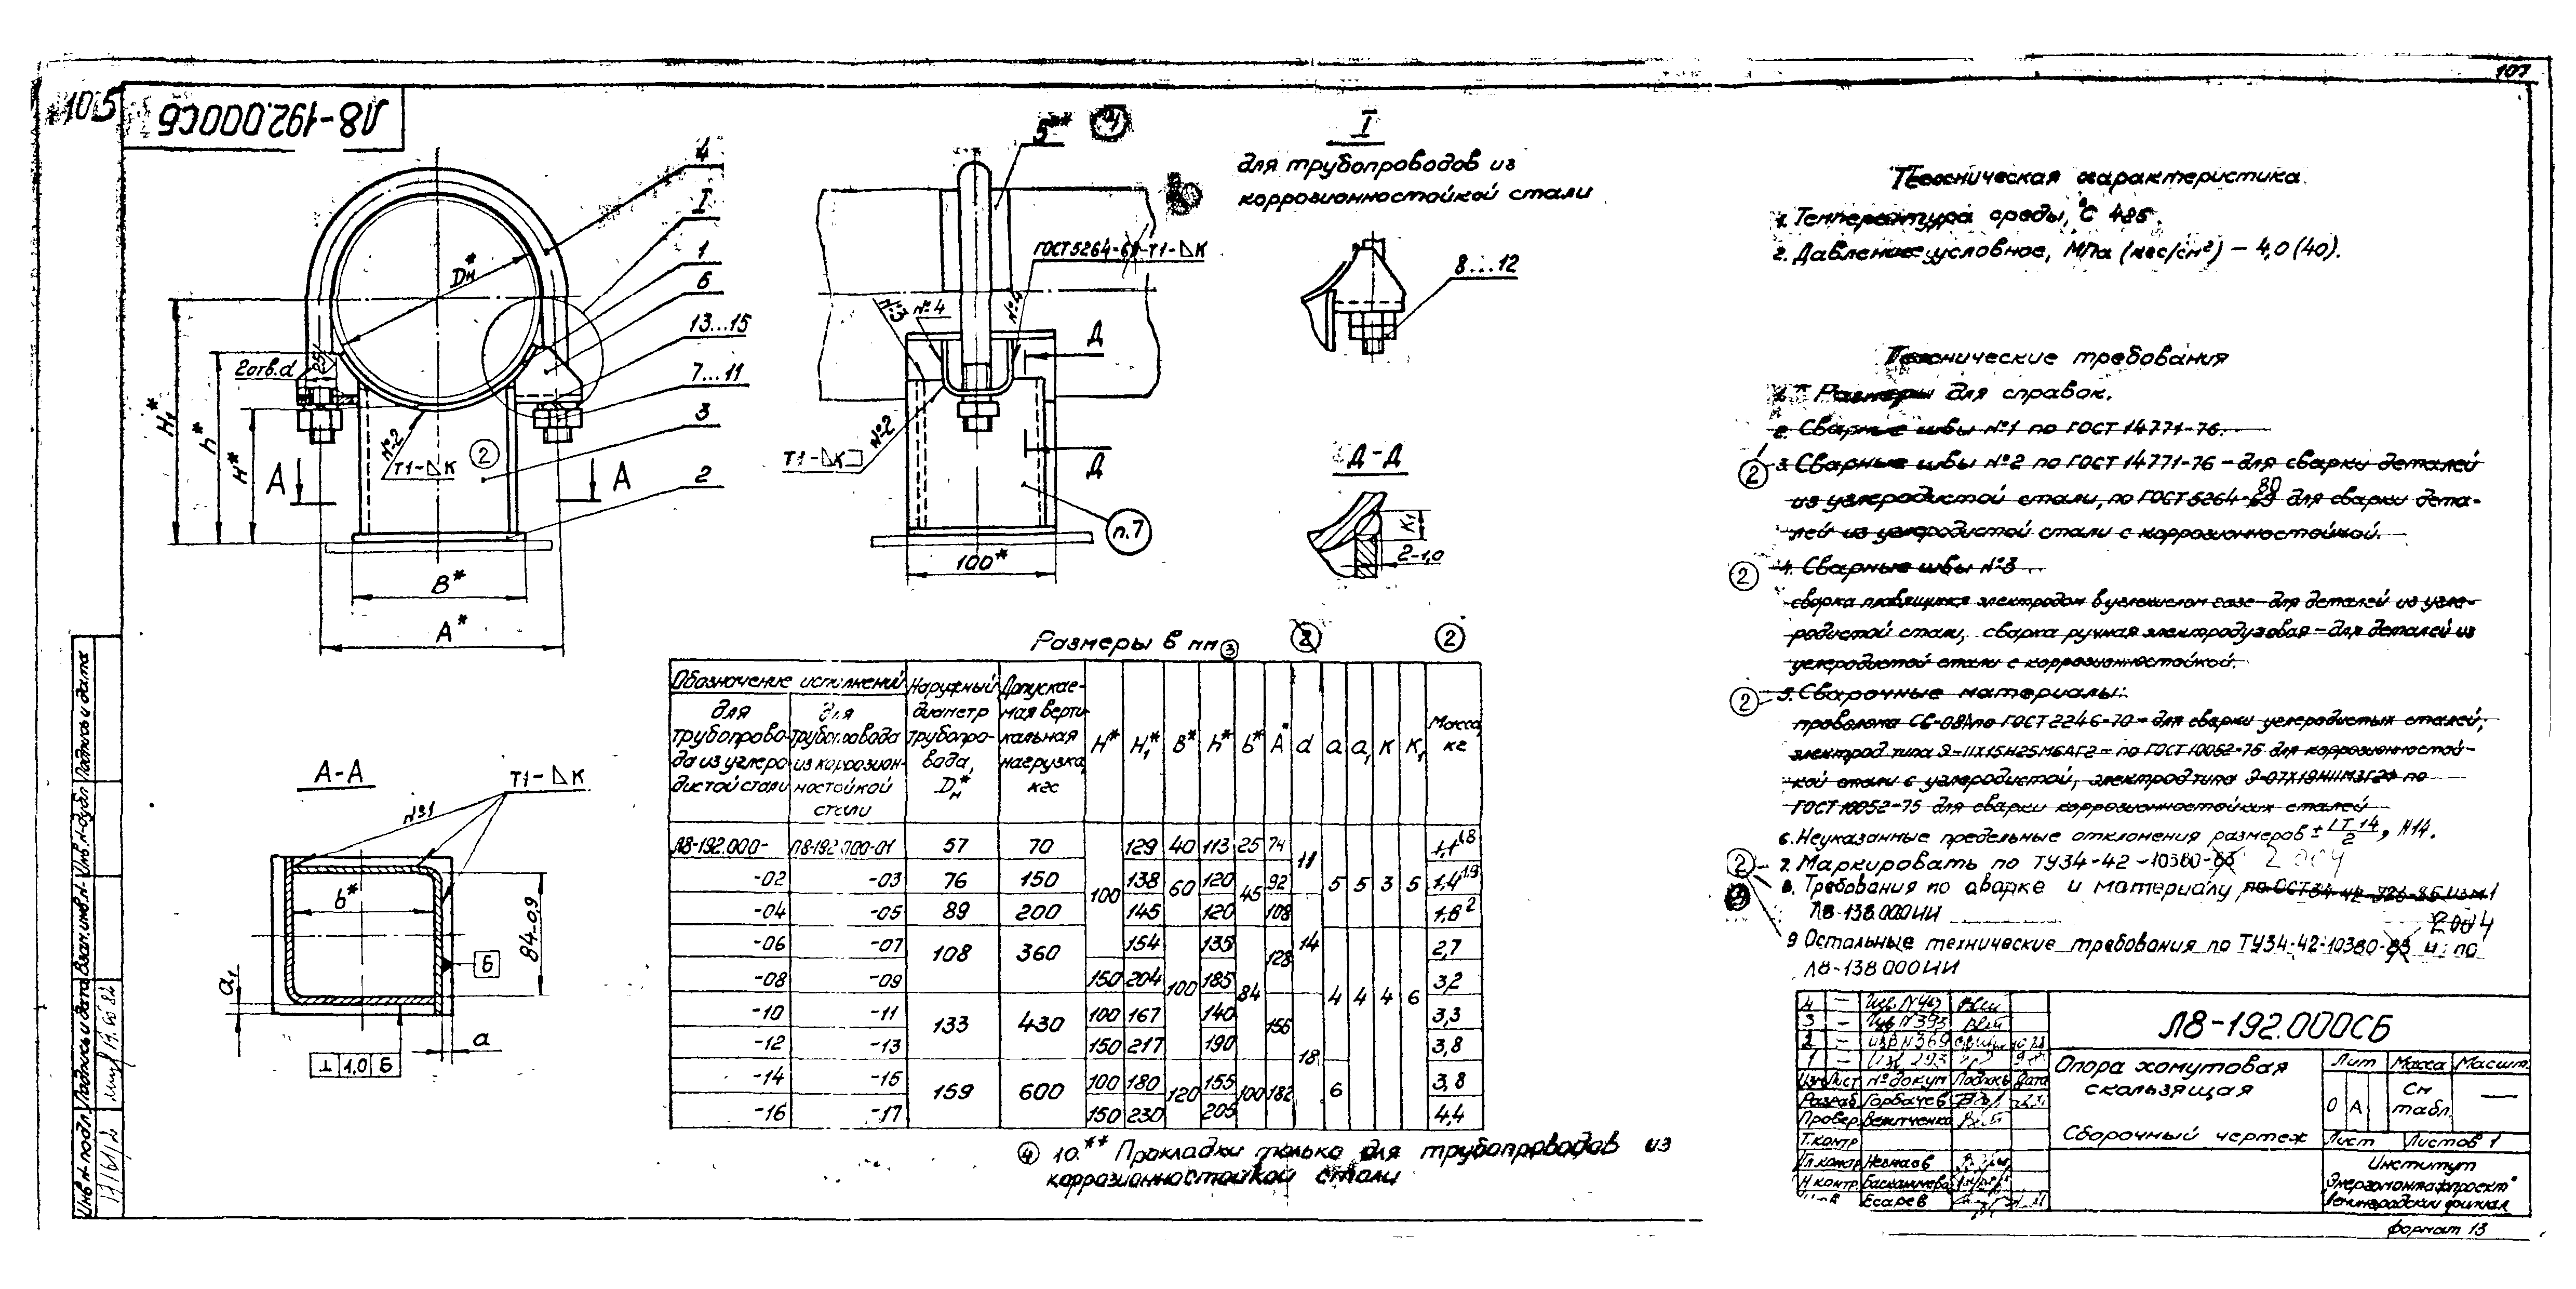 107
105
Л8-192.000СБ
4
I
1
6
13...15
7...11
3
2
Dн*
2отв.d
25
H1*
h*
H*
№2
T1-⊿K
2
А
А
B*
A*
5**
ГОСТ 5264-69-T1-⊿K
№3
№4
№4
№2
T1-⊿K
Д
Д
п.7
100*
I
для трубопроводов из
коррозионностойкой стали
8...12
Д-Д
K1
2-1,0
А-А
T1-⊿K
№1
b*
84-0,9
Б
a1
a
⊥ 1,0 Б
Размеры в мм 3
2
2
Обозначение исполнений
для трубопровода из углеродистой стали
для трубопровода из коррозионностойкой стали
Наружный диаметр трубопровода, Dн*
Допускаемая вертикальная нагрузка, кгс
H* H1* B* h* b* A* d a a1 K K1
Масса, кг
Л8-192.000- Л8-192.000-01 57 70 100 129 40 113 25 74 11 5 5 3 5 1,1 1,8
-02 -03 76 150 138 60 120 45 92 1,4 1,9
-04 -05 89 200 145 120 108 14 1,6 2
-06 -07 108 360 154 100 135 84 128 4 4 4 6 2,7
-08 -09 150 204 185 3,2
-10 -11 133 430 100 167 140 156 18 3,3
-12 -13 150 217 190 3,8
-14 -15 159 600 100 180 120 155 100 182 6 3,8
-16 -17 150 230 205 4,4
4 10.** Прокладки только для трубопроводов из
коррозионностойкой стали
Техническая характеристика
1. Температура среды, °С 485.
2. Давление условное, МПа (кгс/см²) – 4,0 (40).
Технические требования
1.* Размеры для справок.
2. Сварные швы №1 по ГОСТ 14771-76.
2 3. Сварные швы №2 по ГОСТ 14771-76 – для сварки деталей
из углеродистой стали, по ГОСТ 5264-69 80 для сварки дета-
лей из углеродистой стали с коррозионностойкой.
2 4. Сварные швы №3
сварка плавящимся электродом в углекислом газе – для деталей из угле-
родистой стали, сварка ручная электродуговая – для деталей из
углеродистой стали с коррозионностойкой.
2 5. Сварочные материалы:
проволока Св-08А по ГОСТ 2246-70 – для сварки углеродистых сталей,
электрод типа Э-11Х15Н25М6АГ2 – по ГОСТ 10052-75 для коррозионностой-
кой стали с углеродистой, электрод типа Э-07Х19Н11М3Г2Ф по
ГОСТ 10052-75 для сварки коррозионностойких сталей
6. Неуказанные предельные отклонения размеров ± IT14/2, H14.
2 7. Маркировать по ТУ34-42-10380-83 2004
8. Требования по сварке и материалу по ОСТ 34-42-726-85 изм.1
Л8-138.000ИИ
2004
9 Остальные технические требования по ТУ34-42-10380-83 и по
Л8-138 000ИИ
4 –
3 – Изв N393
2 – Изв N369
1 – Изв 293
Изм Лист № докум Подпись Дата
Разраб Горбачев
Провер.
Т.контр
Н контр
Есарев
Л8-192.000СБ
Опора хомутовая
скользящая
Сборочный чертеж
Лит Масса Масшт.
О А
См
табл.
—
Лист Листов 1
Институт
"Энергомонтажпроект"
Ленинградский филиал
формат 13
Инв № подл. Подпись и дата Взам инв № Инв. № дубл Подпись и дата